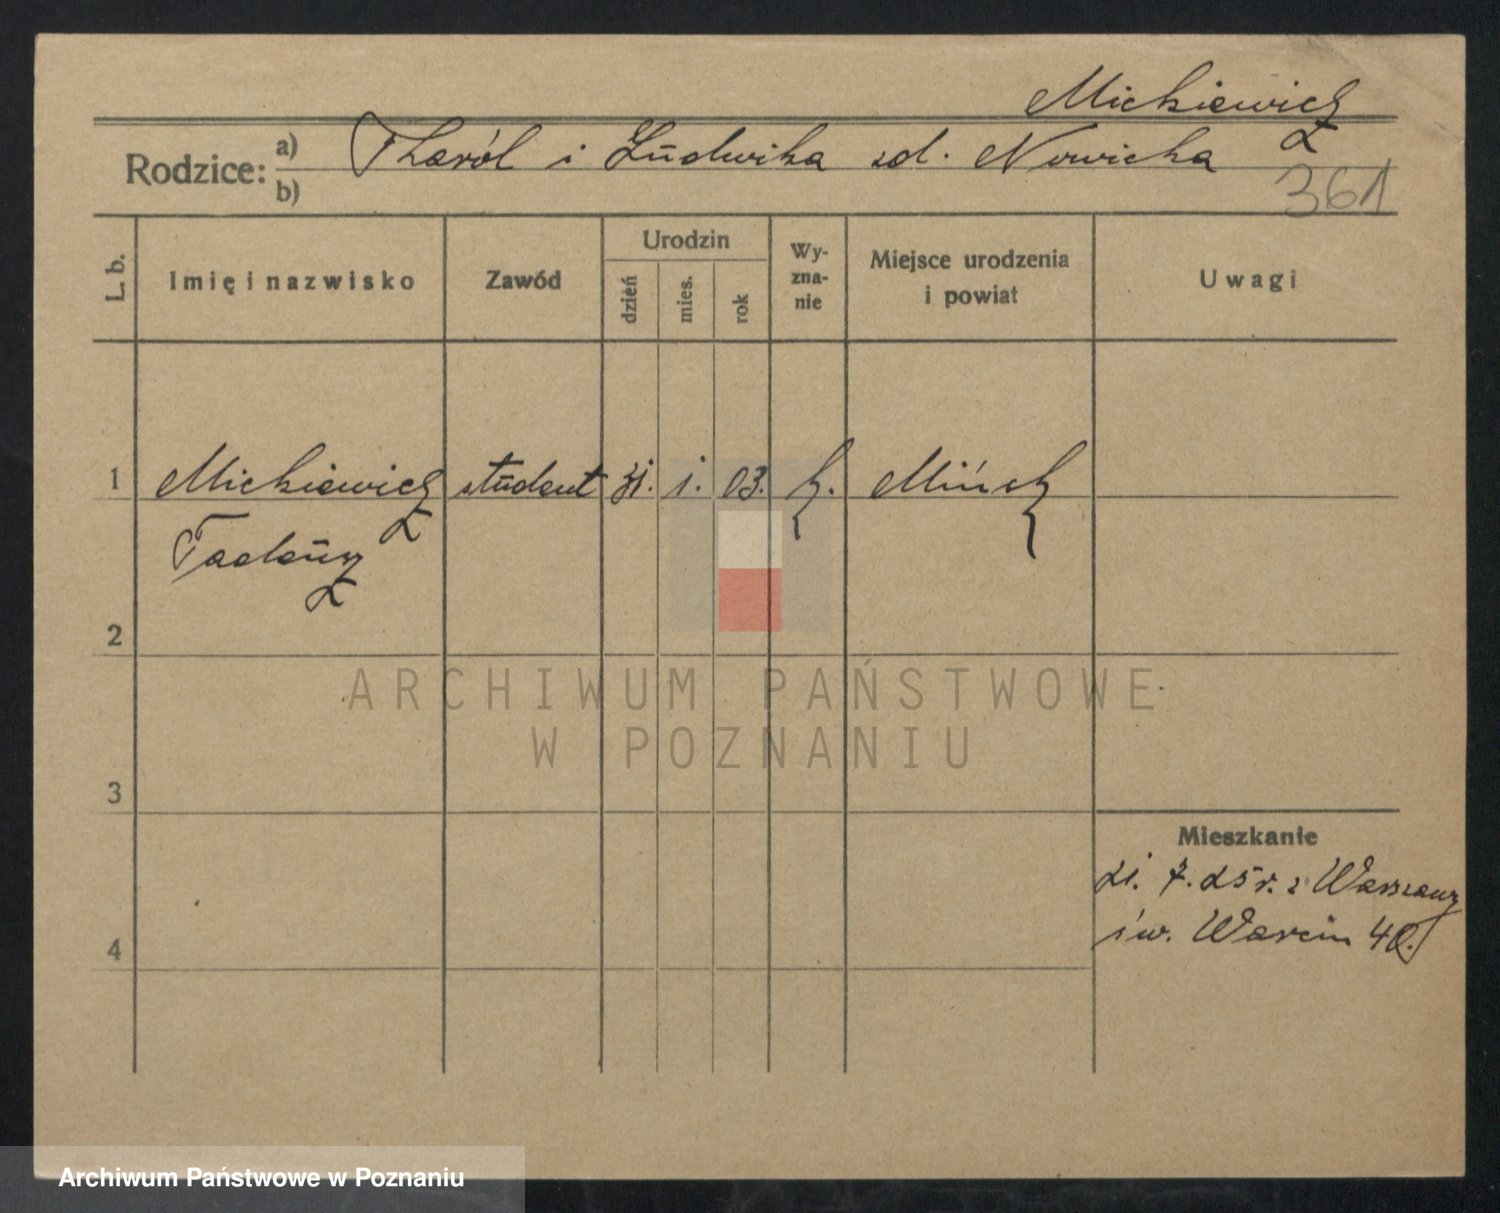 Mickiewicz
Rodzice:
a) Karól i Ludwika zd. Nowicka
b)
361
L. b.
Imię i nazwisko
Zawód
Urodzin
dzień
mies.
rok
Wy-
zna-
nie
Miejsce urodzenia
i powiat
Uwagi
1 Mickiewicz student 31. 1. 03. k. Mińsk
Tadeusz
2
3
4
Mieszkanie
21. 7. 25 r. z Warszawy
św. Marcin 40.
ARCHIWUM PAŃSTWOWE
W POZNANIU
Archiwum Państwowe w Poznaniu